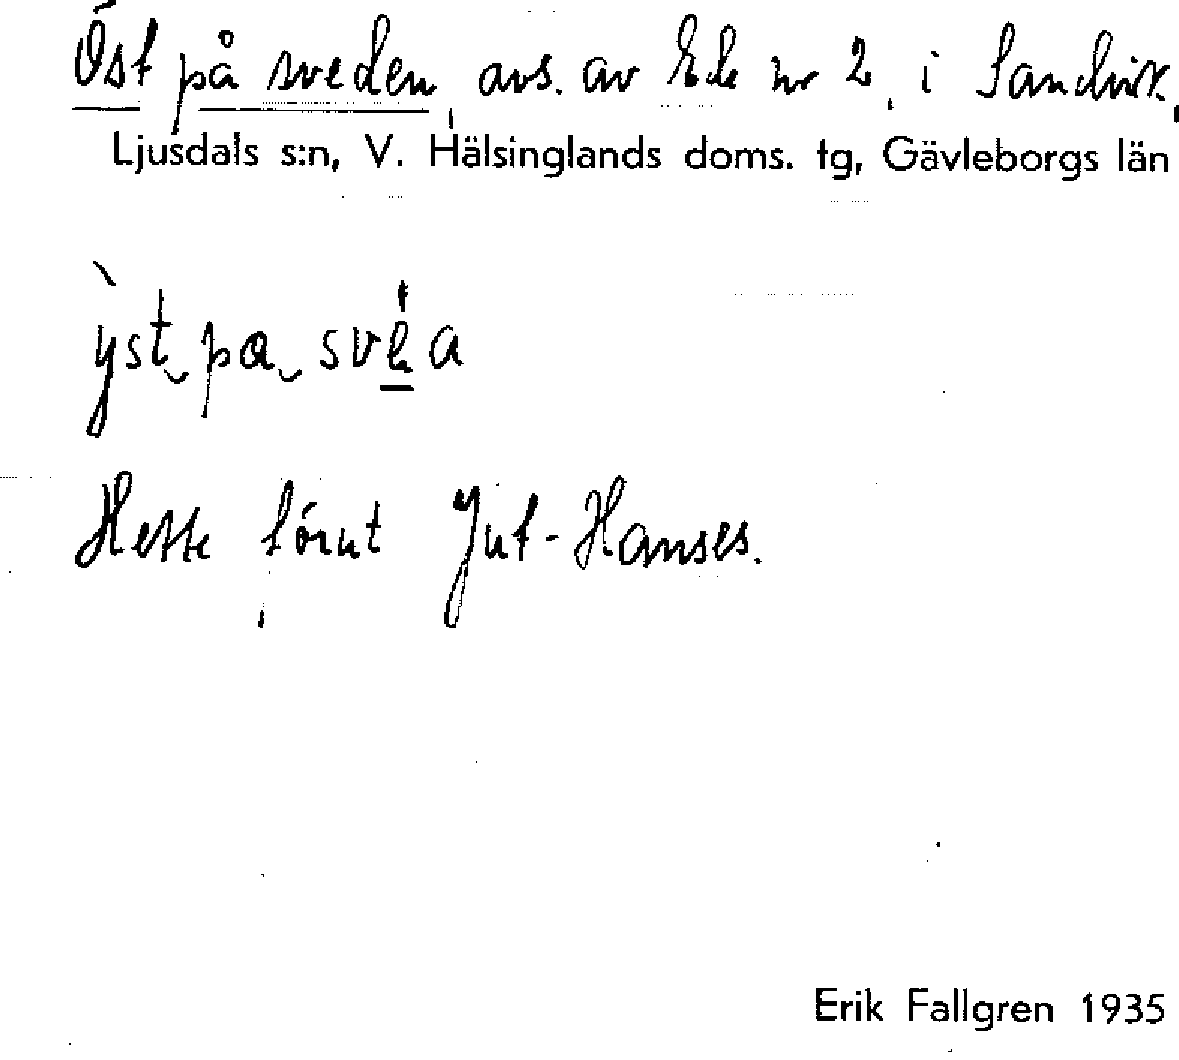 Öst på sveden, avs. av Ede nr 2, i Sandvik,
Ljusdals s:n, V. Hälsinglands doms. tg, Gävleborgs län
ỳst pa sve̱a
Hette förut Jut-Hanses.
Erik Fallgren 1935